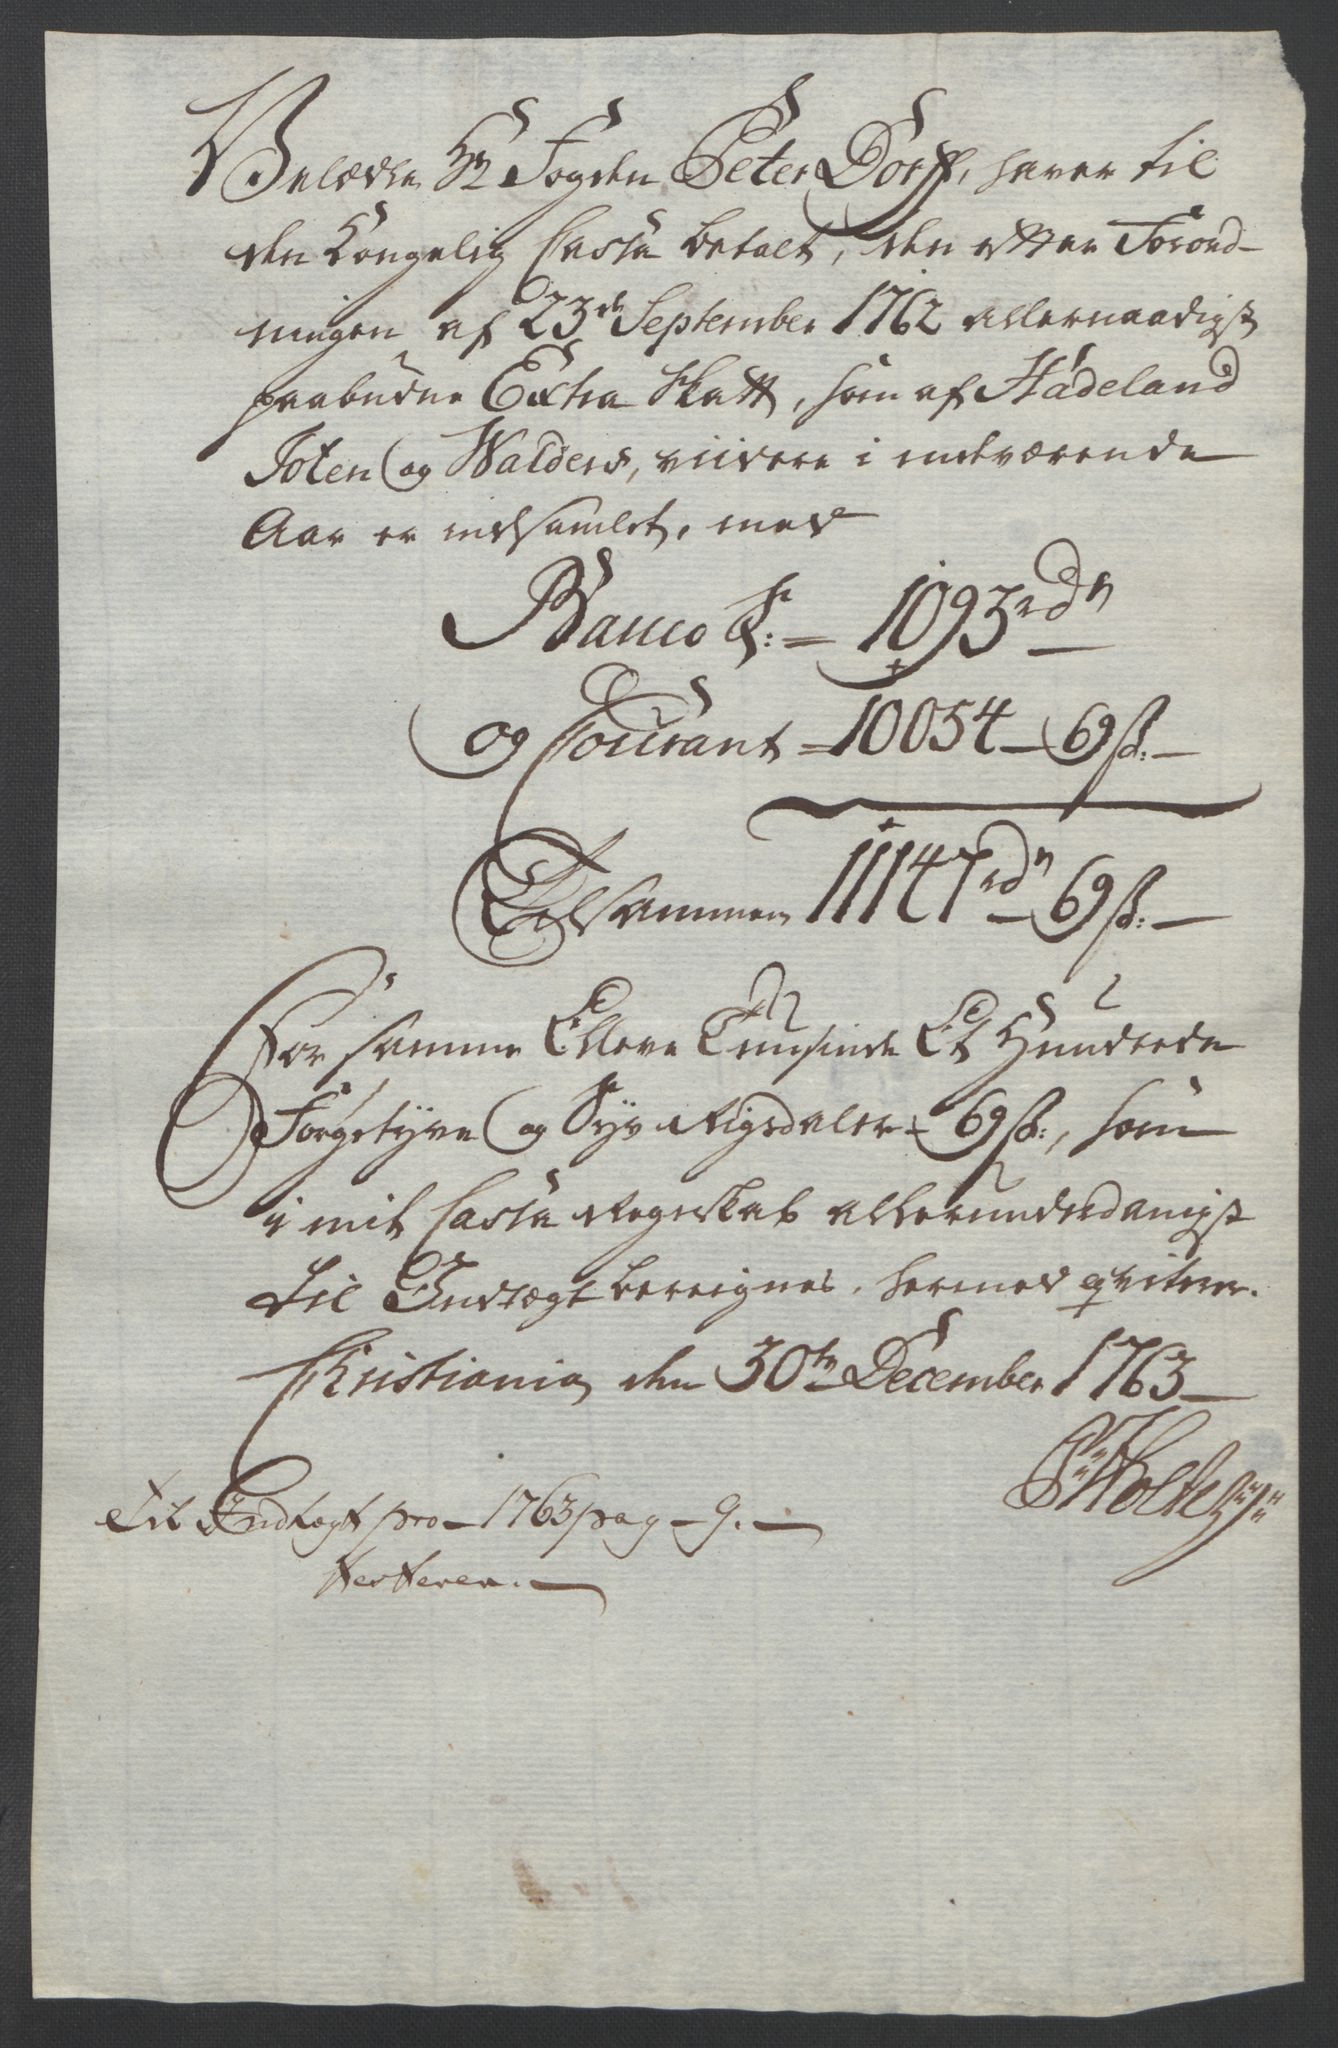 Velædle Hr Fogden Peter Dorff, haver til
den Kongelig Cassa betalt, den efter Forord-
ningen af 23de September 1762 allernaadigst
paabudne Extra Skatt, som af Hadeland
Toten og Walders, viidere i indeværende
Aar er indsamlet, med
Banco S: = 1093 rdr
og Courant = 10054 - 69 ß: -
Tilsammen 11147 rdr 69 ß: -
For samme Elleve Tuusinde Et Hundrede
Fyrgetyve og Syv Rigsdaler - 69 ß:, som
i mit Cassa Regnskab allerunderdanigst
til Indtægt bereignes, hermed qviteres.
Christiania den 30te December 1763
Holte
Til Indtægt pro - 1763 pag - 9. -